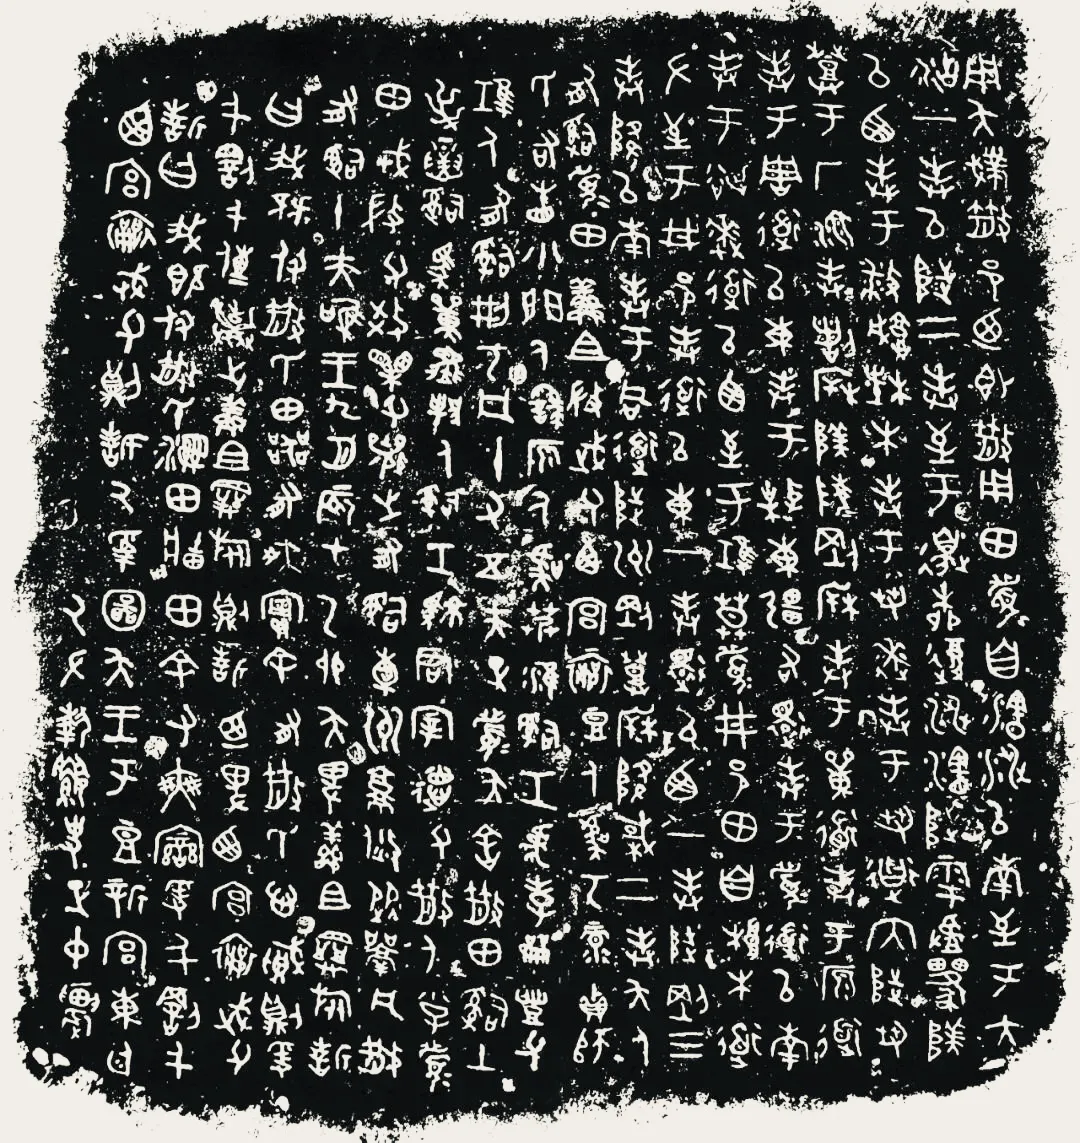 用夨𢦏散邑乃即散用田眉自瀗涉以南至于大
沽一奉以陟二奉至于邊柳復涉瀗陟雩
以西奉于播城楮木奉于芻逨奉于芻道内陟芻
登于厂湶奉諸柝陵剛柝奉于道奉于原道
奉于周道以東奉于東疆右還奉于眉道以南
奉于逨道以西至于莫眉井邑田自桹木道
左至于井邑奉道以東一奉還以西一奉陟剛三
奉降以南奉于同道陟州剛登柝降棫二奉夨人
有司眉田鮮且微武父西宮襄豆人虞丂彔貞師
氏右眚小門人繇原人虞艿淮司工虎孝龠豐父
人有司刑丂凡十又五夫正眉夨舍散田司土
屰司馬單邦人司工君宰德父散人小子眉
田戎微父效父襄之有司橐州焂從凡散
有司十夫唯王九月辰才乙卯夨卑鮮且旅誓
曰我既付散氏田器有爽實余有散氏心賊則爰
千罰千傳棄之鮮且旅則誓乃卑西宮襄武父
誓曰我既付散氏濕田牆田余有爽變爰千罰千
西宮襄武父則誓厥受圖夨王于豆新宮東廷
厥左執要史正中農